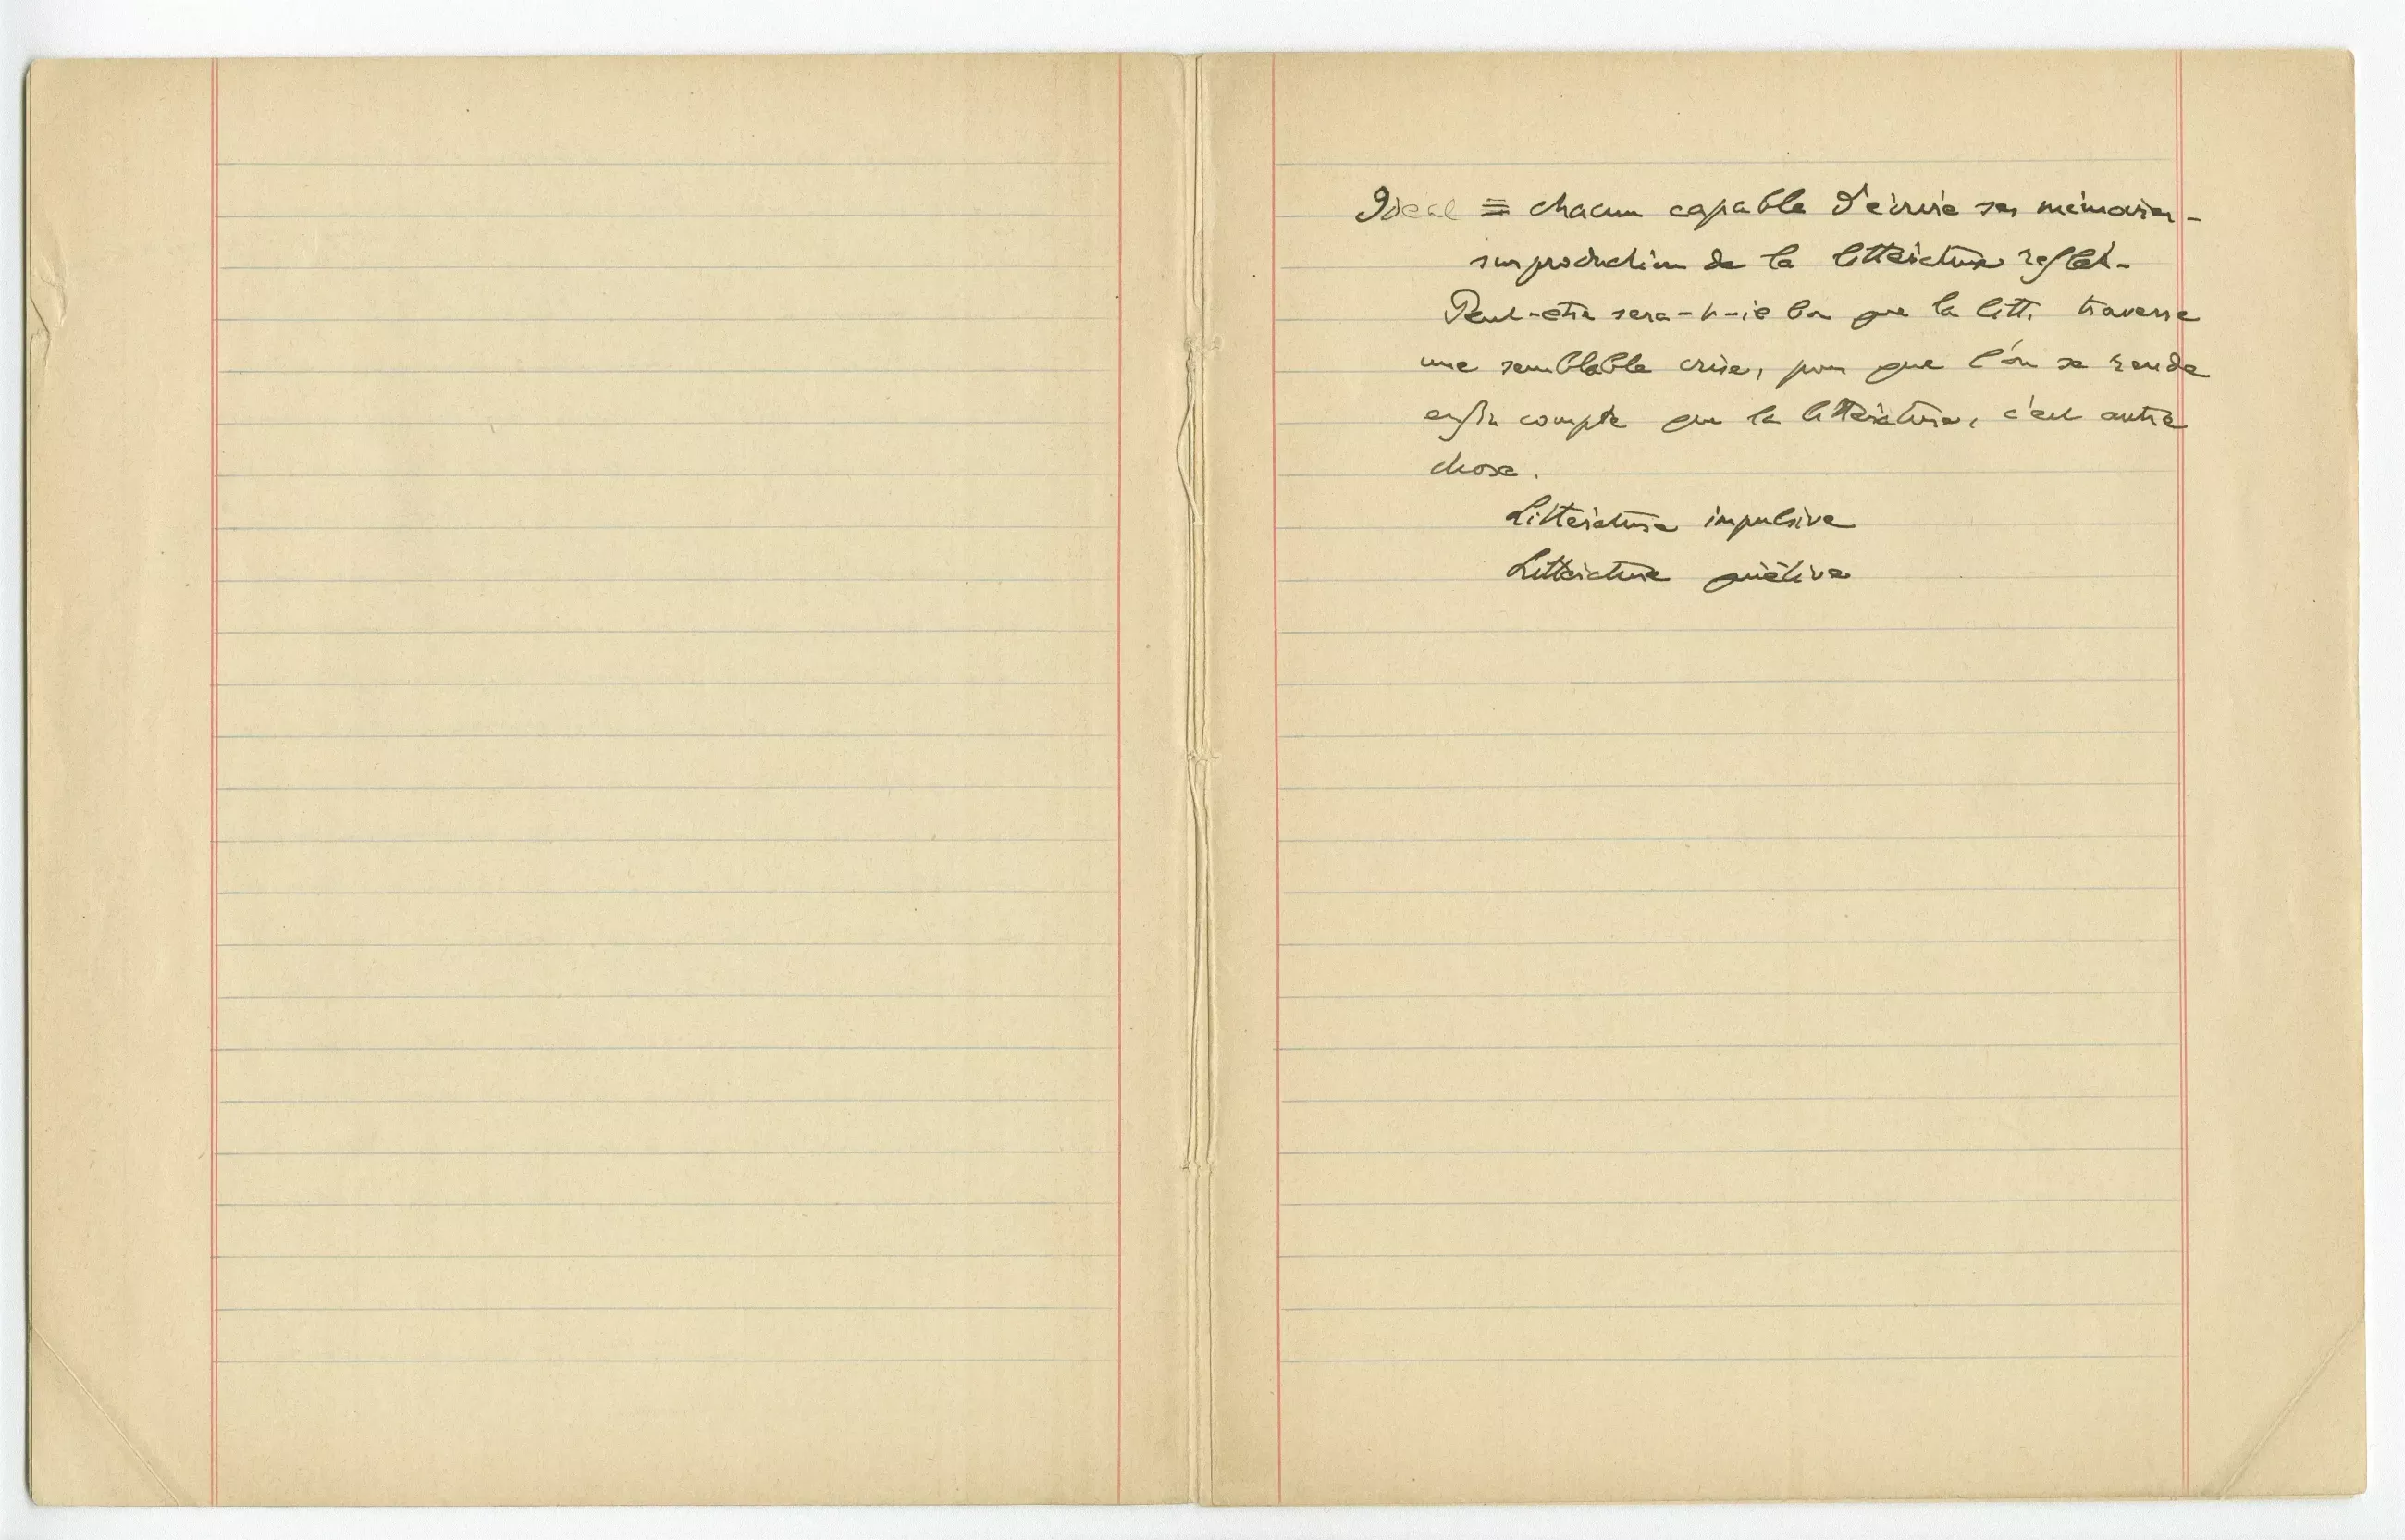 Idéal = chacun capable d'écrire ses mémoires -
surproduction de la littérature reflet -
Peut-être sera-t-il bon que la litt. traverse
une semblable crise, pour que l'on se rende
enfin compte que la littérature, c'est autre
chose.
Littérature impulsive
Littérature quiétive